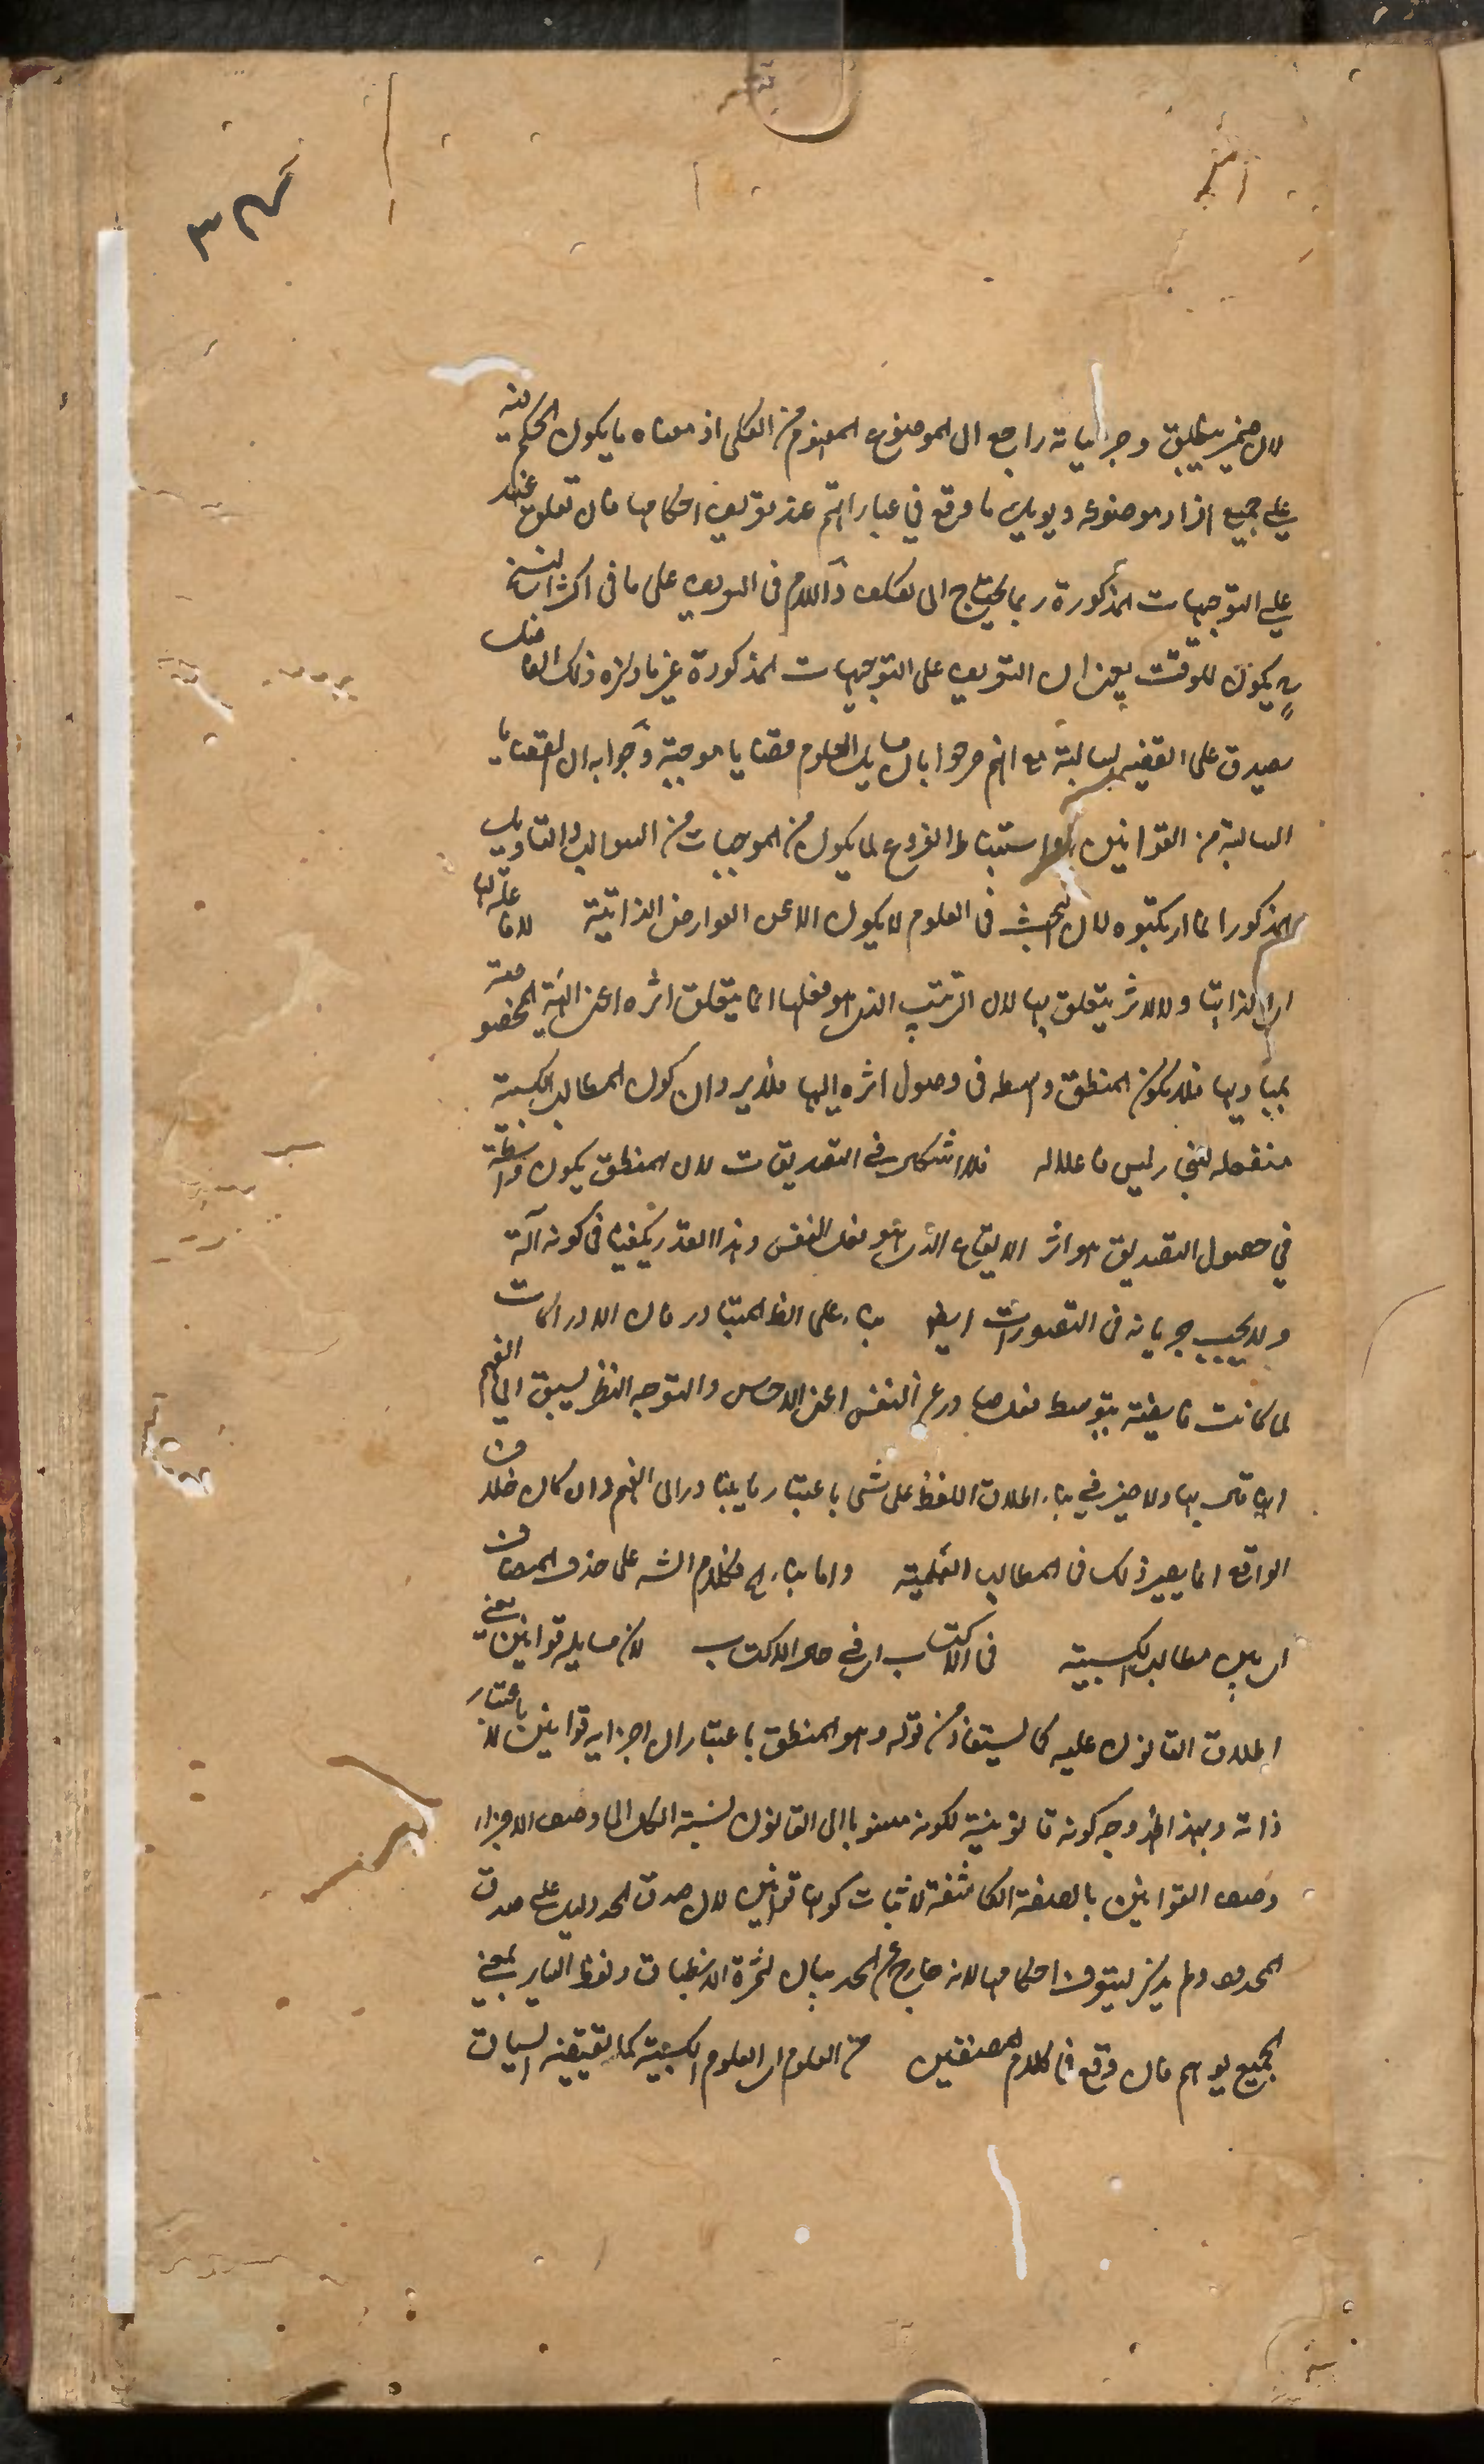 لان ضمير ينطبق وجزئياته راجع الى الموضوع المفهوم من الكلى اذ معناه ما يكون الحكم فيه
على جميع افراد موضوعه ويؤيده ما وقع في عباراتهم عند تعريف احكامها فان تعلق عند
على التوجيهات المذكورة ربما يحتاج الى تكلف ذ اللام فى التعريف على ما فى اكثر النسخ
يكون للوقت يعنى ان التعريف على التوجيهات المذكورة غير ما ذكره ذلك الفاضل
يصدق على القضية السالبة مع انهم صرحوا بان مسايل العلوم قضايا موجبة وجوابه ان القضايا
السالبة من القوانين استنباط الفروع لما يكون من الموجبات من السوالب والتاويل
المذكور انما ارتكبوه لان البحث فى العلوم لا يكون الا عن العوارض الذاتية لا فاعلة لها
اى لذاتها ولا لاثر يتعلق بها لان الترتيب الذى هو فعلها انما يتعلق اثره اعنى الهيئة المخصوصة
بمباديها فلا يكون المنطق واسطة فى وصول اثره اليها فلا يرد ان كون المطالب الكسبية
منفعلة لشئ وليس فاعلا له فلا اشكال في التصديقات لان المنطق يكون واسطة
في حصول التصديق هو اثر الايقاع الذى هو فعل النفس وهذا القدر يكفينا فى كونه آلة
ولا يجب جريانه فى التصورات ايضا بناء على الظ المتبادر فان الادراكات
لما كانت فايضة بتوسط فعل صادر عن النفس اعنى الاحساس والتوجه النظر يسبق الى الفهم
انها قابلة بها ولا ضير في بناء اطلاق اللفظ على شئ باعتبار ما يتبادر الى الفهم وان كان خلاف
الواقع انما يضير ذلك فى المطالب العلمية واما بناء كلام الش على حذف المضاف
اى بين مطالب الكسبية فى الاكتساب اى في حال الاكتساب لان مسايله قوانين يعنى
اطلاق القانون عليه كما يستفاد من قوله وهو المنطق باعتبار ان اجزايه قوانين لا باعتبار
ذاته وبهذا ظهر وجه كونه قانونية لكونه منسوبا الى القانون نسبة الكل الى وصف الاجزاء
وصف القوانين بالصفة الكاشفة لاثبات كونها قوانين لان صدق الحد دليل على صدق
المحدود ولم يذكر ليتعرف احكامها لانه خارج عن الحد بيان لثمرة الانطباق ولفظ الساير بمعنى
الجميع يوهم فان وقع فى كلام المصنفين من العلوم اى العلوم الكسبية كما يقتضيه السياق